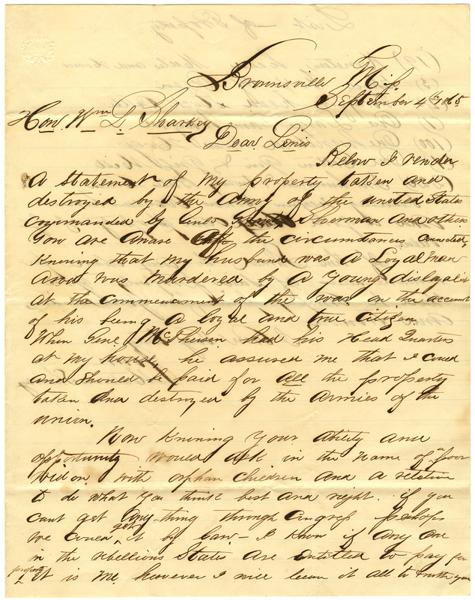 Brownsville Mis
September 4th 1865
Hon Wm L Sharkey
Dear
Below I render
A Statement of my property taken and
destroyed by the Army of the united States
commanded by Genl Sherman And others
You are Aware of the circumstances connected
knowing that my husband was A Loyal man
And was murdered by A Young disloyalist
at the commencement of the war on the account
of his being A loyal and true citizen
When Genl McPherson had his Head Quarters
at my house he assured me that I could
and should be paid for all the property
taken And destroyed by the armies of the
union.
Now knowing your ability and
opportunity would ask in the name of Poor
widow with orphan children and a relation
to do what you think best and right. if you
cant get any thing through Congress perhaps
we could get it by Law - I know if any one
in the Rebellious States are entitled to pay for
property it is me, however I will leave it all to